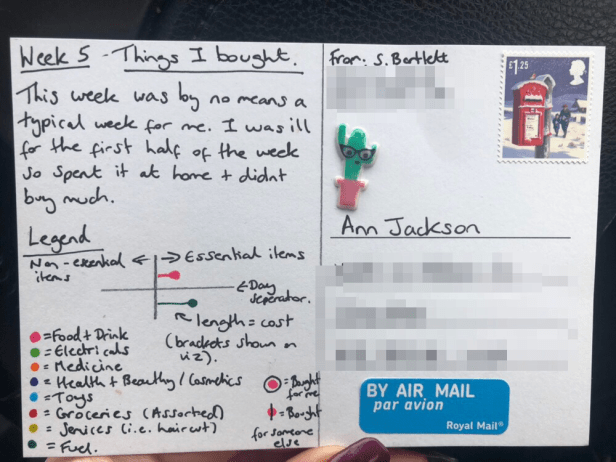 Week 5 - Things I bought.
This week was by no means a
typical week for me. I was ill
for the first half of the week
so spent it at home + didnt
buy much.
Legend
Non-essential ← | → Essential items
items
← Day
Seperator.
length = cost
(brackets shown on
viz).
= Food + Drink
= Electricals
= Medicine
= Health + Beauthy / Cosmetics
= Toys
= Groceries (Assorted)
= Services (i.e. haircut)
= Fuel.
= Bought
for me
= Bought
for someone
else
From: S. Bartlett
£1.25
Ann Jackson
BY AIR MAIL
par avion
Royal Mail®